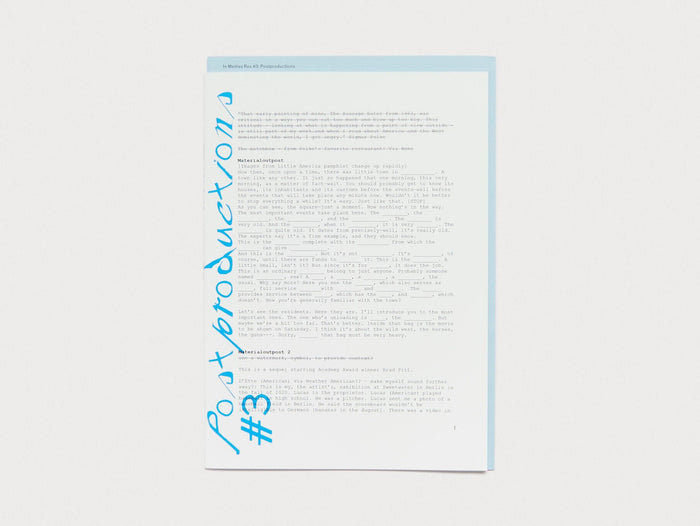 In Medias Res #3: Postproductions
Postproductions
#3
"That early painting of mine, The Sausage Eater from 1963, was
critical in a way: you can eat too much and blow up too big. This
attitude - looking at what is happening from a point of view outside -
is still part of my work and when I read about America and the West
dominating the world, I get angry." Sigmar Polke
The matchbox - from Polke's favorite restaurant: Via Nono
Materialoutpost
[Images from Little America pamphlet change up rapidly]
Now then, once upon a time, there was little town in ________. A
town like any other. It just so happened that one morning, this very
morning, as a matter of fact-wait. You should probably get to know its
houses, its inhabitants and its customs before the events-well before
the events that will take place any minute now. Wouldn't it be better
to stop everything a while? It's easy. Just like that. [STOP]
As you can see, the square-just a moment. Now nothing's in the way.
The most important events take place here. The ______, the
______, the ______, and the ______. The ______ is
very old. And the ______, when it ______, it is very _____. The
______ is quite old. It dates from precisely-well, it's really old.
The experts say it's a fine example, and they should know.
This is the ______ complete with its ______ from which the
______ can give ______.
And this is the ______. But it's not ______. It's ______, of
course, until there are funds to ______ it. This is the ______. A
little small, isn't it? But since it's for ______, it does the job.
This is an ordinary ______ belong to just anyone. Probably someone
named ______, see? A _____, a _____, a ______, a ______, the
usual. Why say more? Here you see the _____, which also serves as
______, full service _____with _____ and ______. The ______
provides service between _____, which has the____, and _____, which
doesn't. Now you're generally familiar with the town?
Let's see the residents. Here they are. I'll introduce you to the most
important ones. The one who's unloading is ____, the ______. But
maybe we're a bit too far. That's better. Inside that bag is the movie
to be shown on Saturday. I think it's about the wild west, the horses,
the guns---. Sorry, _____ that bag must be very heavy.
Materialoutpost 2
Use a watermark, symbol, to provide context?
This is a sequel starring Academy Award winner Brad Pitt.
I'Etto (American) Via Heather American?? - make myself sound further
away?) This is my, the artist's, exhibition at Sweetwater in Berlin in
the fall of 2020. Lucas is the proprietor. Lucas (American) played
high school. He was a pitcher. Lucas sent me a photo of a
field in Berlin. He said the scoreboard wouldn't be
to Germans [bananas in the dugout]. There was a video in
1